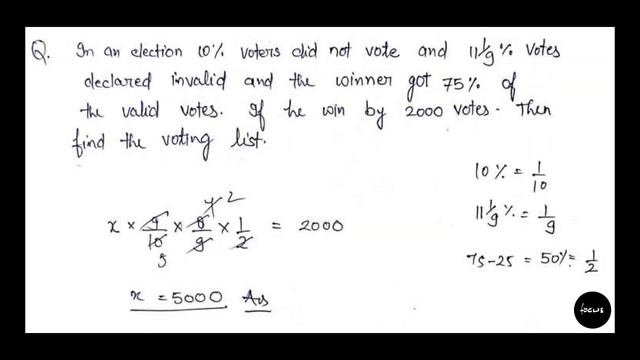 Q. In an election 10% voters did not vote and 11 1/9 % votes
declared invalid and the winner got 75% of
the valid votes. If he win by 2000 votes. Then
find the voting list.
10% = 1/10
11 1/9 % = 1/9
75-25 = 50% = 1/2
x × 9/10 × 8/9 × 1/2 = 2000
5 4 2
x = 5000 Ans
focus